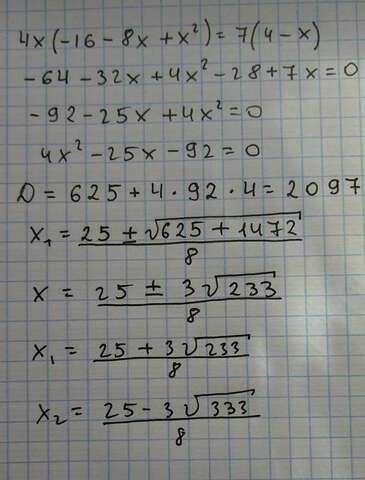 4x(-16-8x+x²)=7(4-x)
-64-32x+4x²-28+7x=0
-92-25x+4x²=0
4x²-25x-92=0
D=625+4·92·4=2097
x₁=25±√625+1472/8
x=25±3√233/8
x₁=25+3√233/8
x₂=25-3√333/8